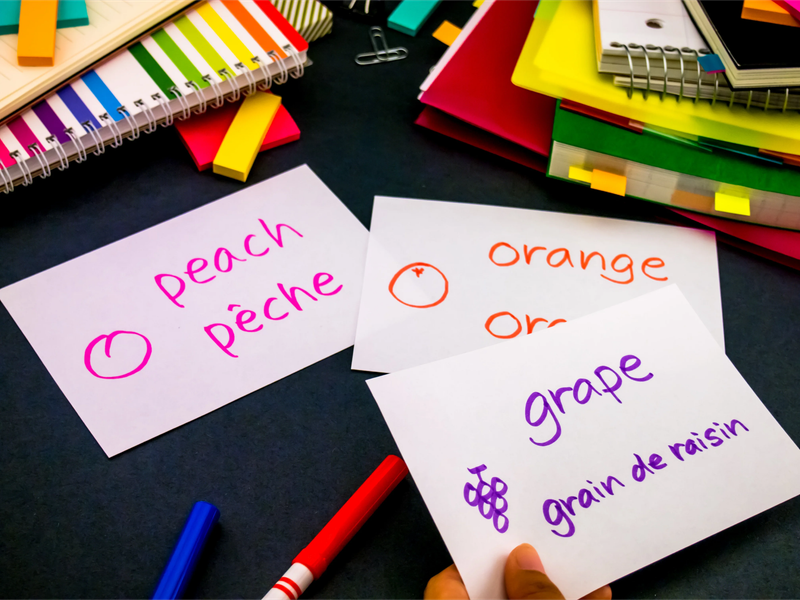 peach
pêche
orange
grape
grain de raisin